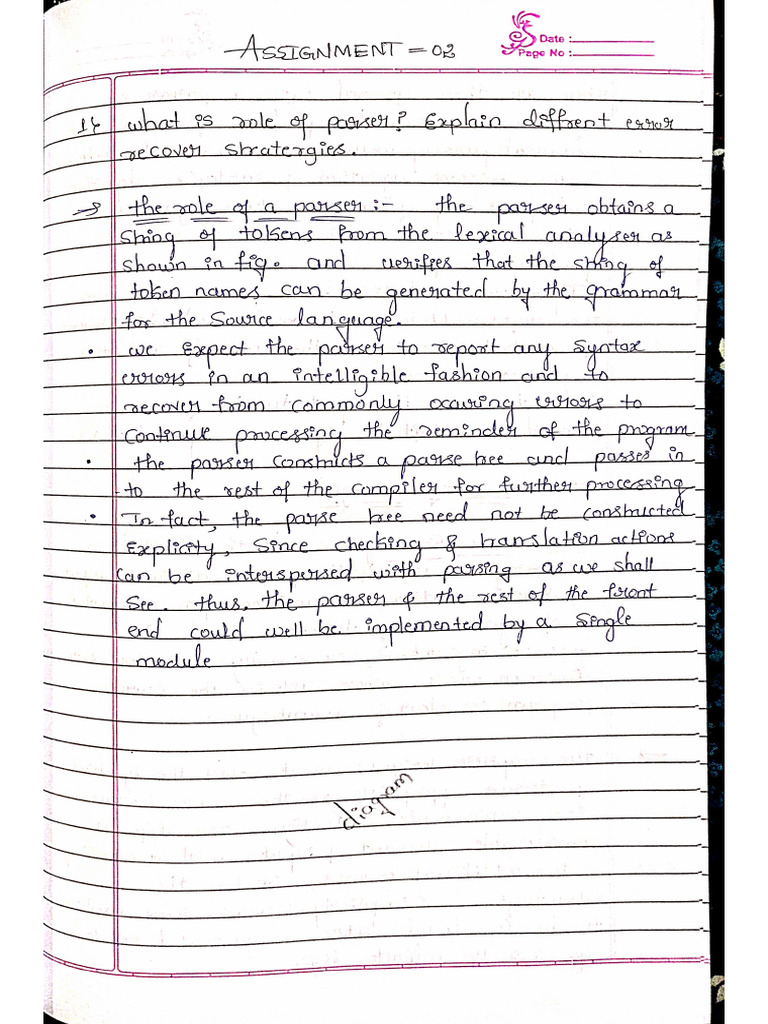 ASSIGNMENT = 02
Date :
Page No :
1} what is role of parser? Explain diffrent error
recover stratergies.
→ the role of a parser :- the parser obtains a
string of tokens from the lexical analyser as
shown in fig. and verifies that the string of
token names can be generated by the grammar
for the source language.
• we expect the parser to report any syntax
errors in an intelligible fashion and to
recover from commonly ocuring errors to
continue processing the reminder of the program
• the parser constructs a parse tree and passes in
to the rest of the compiler for further processing
• In fact, the parse tree need not be constructed
explicity, since checking & translation actions
can be interspersed with parsing as we shall
see. thus, the parser & the rest of the front
end could well be implemented by a single
module
diagram